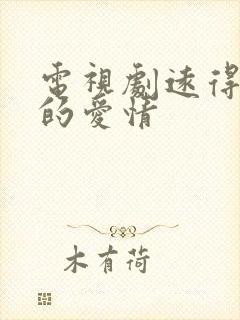 電視劇遠得
的愛情
木有荷